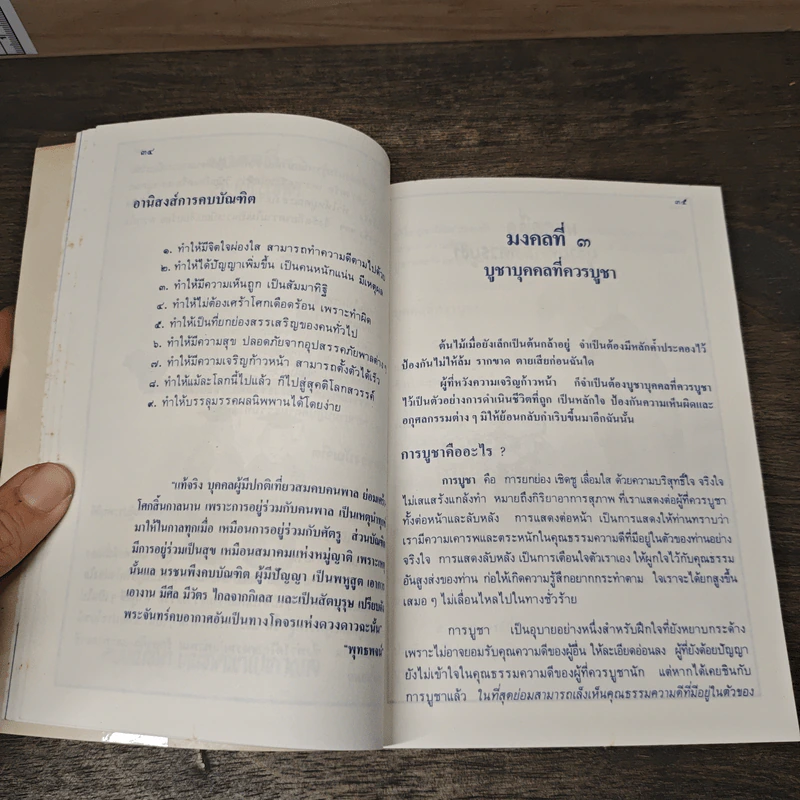 ๓๔
อานิสงส์การคบบัณฑิต
๑. ทำให้มีจิตใจผ่องใส สามารถทำความดีตามไปด้วย
๒. ทำให้ได้ปัญญาเพิ่มขึ้น เป็นคนหนักแน่น มีเหตุผล
๓. ทำให้มีความเห็นถูก เป็นสัมมาทิฐิ
๔. ทำให้ไม่ต้องเศร้าโศกเดือดร้อน เพราะทำผิด
๕. ทำให้เป็นที่ยกย่องสรรเสริญของคนทั่วไป
๖. ทำให้มีความสุข ปลอดภัยจากอุปสรรคภัยพาลต่างๆ
๗. ทำให้มีความเจริญก้าวหน้า สามารถตั้งตัวได้เร็ว
๘. ทำให้แม้ละโลกนี้ไปแล้ว ก็ไปสู่สุคติโลกสวรรค์
๙. ทำให้บรรลุมรรคผลนิพพานได้โดยง่าย
"แท้จริง บุคคลผู้มีปกติเที่ยวสมคบคนพาล ย่อม
โศกสิ้นกาลนาน เพราะการอยู่ร่วมกับคนพาล เป็นเหตุนำทุกข์
มาให้ในกาลทุกเมื่อ เหมือนการอยู่ร่วมกับศัตรู ส่วนบัณฑิต
มีการอยู่ร่วมเป็นสุข เหมือนสมาคมแห่งหมู่ญาติ เพราะเหตุ
นั้นแล นรชนพึงคบบัณฑิต ผู้มีปัญญา เป็นพหูสูต เอาการ
เอางาน มีศีล มีวัตร ไกลจากกิเลส และเป็นสัตบุรุษ เปรียบดัง
พระจันทร์คบอากาศอันเป็นทางโคจรแห่งดวงดาวฉะนั้น"
"พุทธพจน์"
๓๕
มงคลที่ ๓
บูชาบุคคลที่ควรบูชา
ต้นไม้เมื่อยังเล็กเป็นต้นกล้าอยู่ จำเป็นต้องมีหลักค้ำประคองไว้
ป้องกันไม่ให้ล้ม รากขาด ตายเสียก่อนฉันใด
ผู้ที่หวังความเจริญก้าวหน้า ก็จำเป็นต้องบูชาบุคคลที่ควรบูชา
ไว้เป็นตัวอย่างการดำเนินชีวิตที่ถูก เป็นหลักใจ ป้องกันความเห็นผิดและ
อกุศลกรรมต่าง ๆ มิให้ย้อนกลับกำเริบขึ้นมาอีกฉันนั้น
การบูชาคืออะไร ?
การบูชา คือ การยกย่อง เชิดชู เลื่อมใส ด้วยความบริสุทธิ์ใจ จริงใจ
ไม่เสแสร้งแกล้งทำ หมายถึงกิริยาอาการสุภาพ ที่เราแสดงต่อผู้ที่ควรบูชา
ทั้งต่อหน้าและลับหลัง การแสดงต่อหน้า เป็นการแสดงให้ท่านทราบว่า
เรามีความเคารพและตระหนักในคุณธรรมความดีที่มีอยู่ในตัวของท่านอย่าง
จริงใจ การแสดงลับหลัง เป็นการเตือนใจตัวเราเอง ให้ผูกใจไว้กับคุณธรรม
อันสูงส่งของท่าน ก่อให้เกิดความรู้สึกอยากกระทำตาม ใจเราจะได้ยกสูงขึ้น
เสมอ ๆ ไม่เลื่อนไหลไปในทางชั่วร้าย
การบูชา เป็นอุบายอย่างหนึ่งสำหรับฝึกใจที่ยังหยาบกระด้าง
เพราะไม่อาจยอมรับคุณความดีของผู้อื่น ให้ละเอียดอ่อนลง ผู้ที่ยังด้อยปัญญา
ยังไม่เข้าใจในคุณธรรมความดีของผู้ที่ควรบูชานัก แต่หากได้เคยชินกับ
การบูชาแล้ว ในที่สุดย่อมสามารถเล็งเห็นคุณธรรมความดีที่มีอยู่ในตัวของ